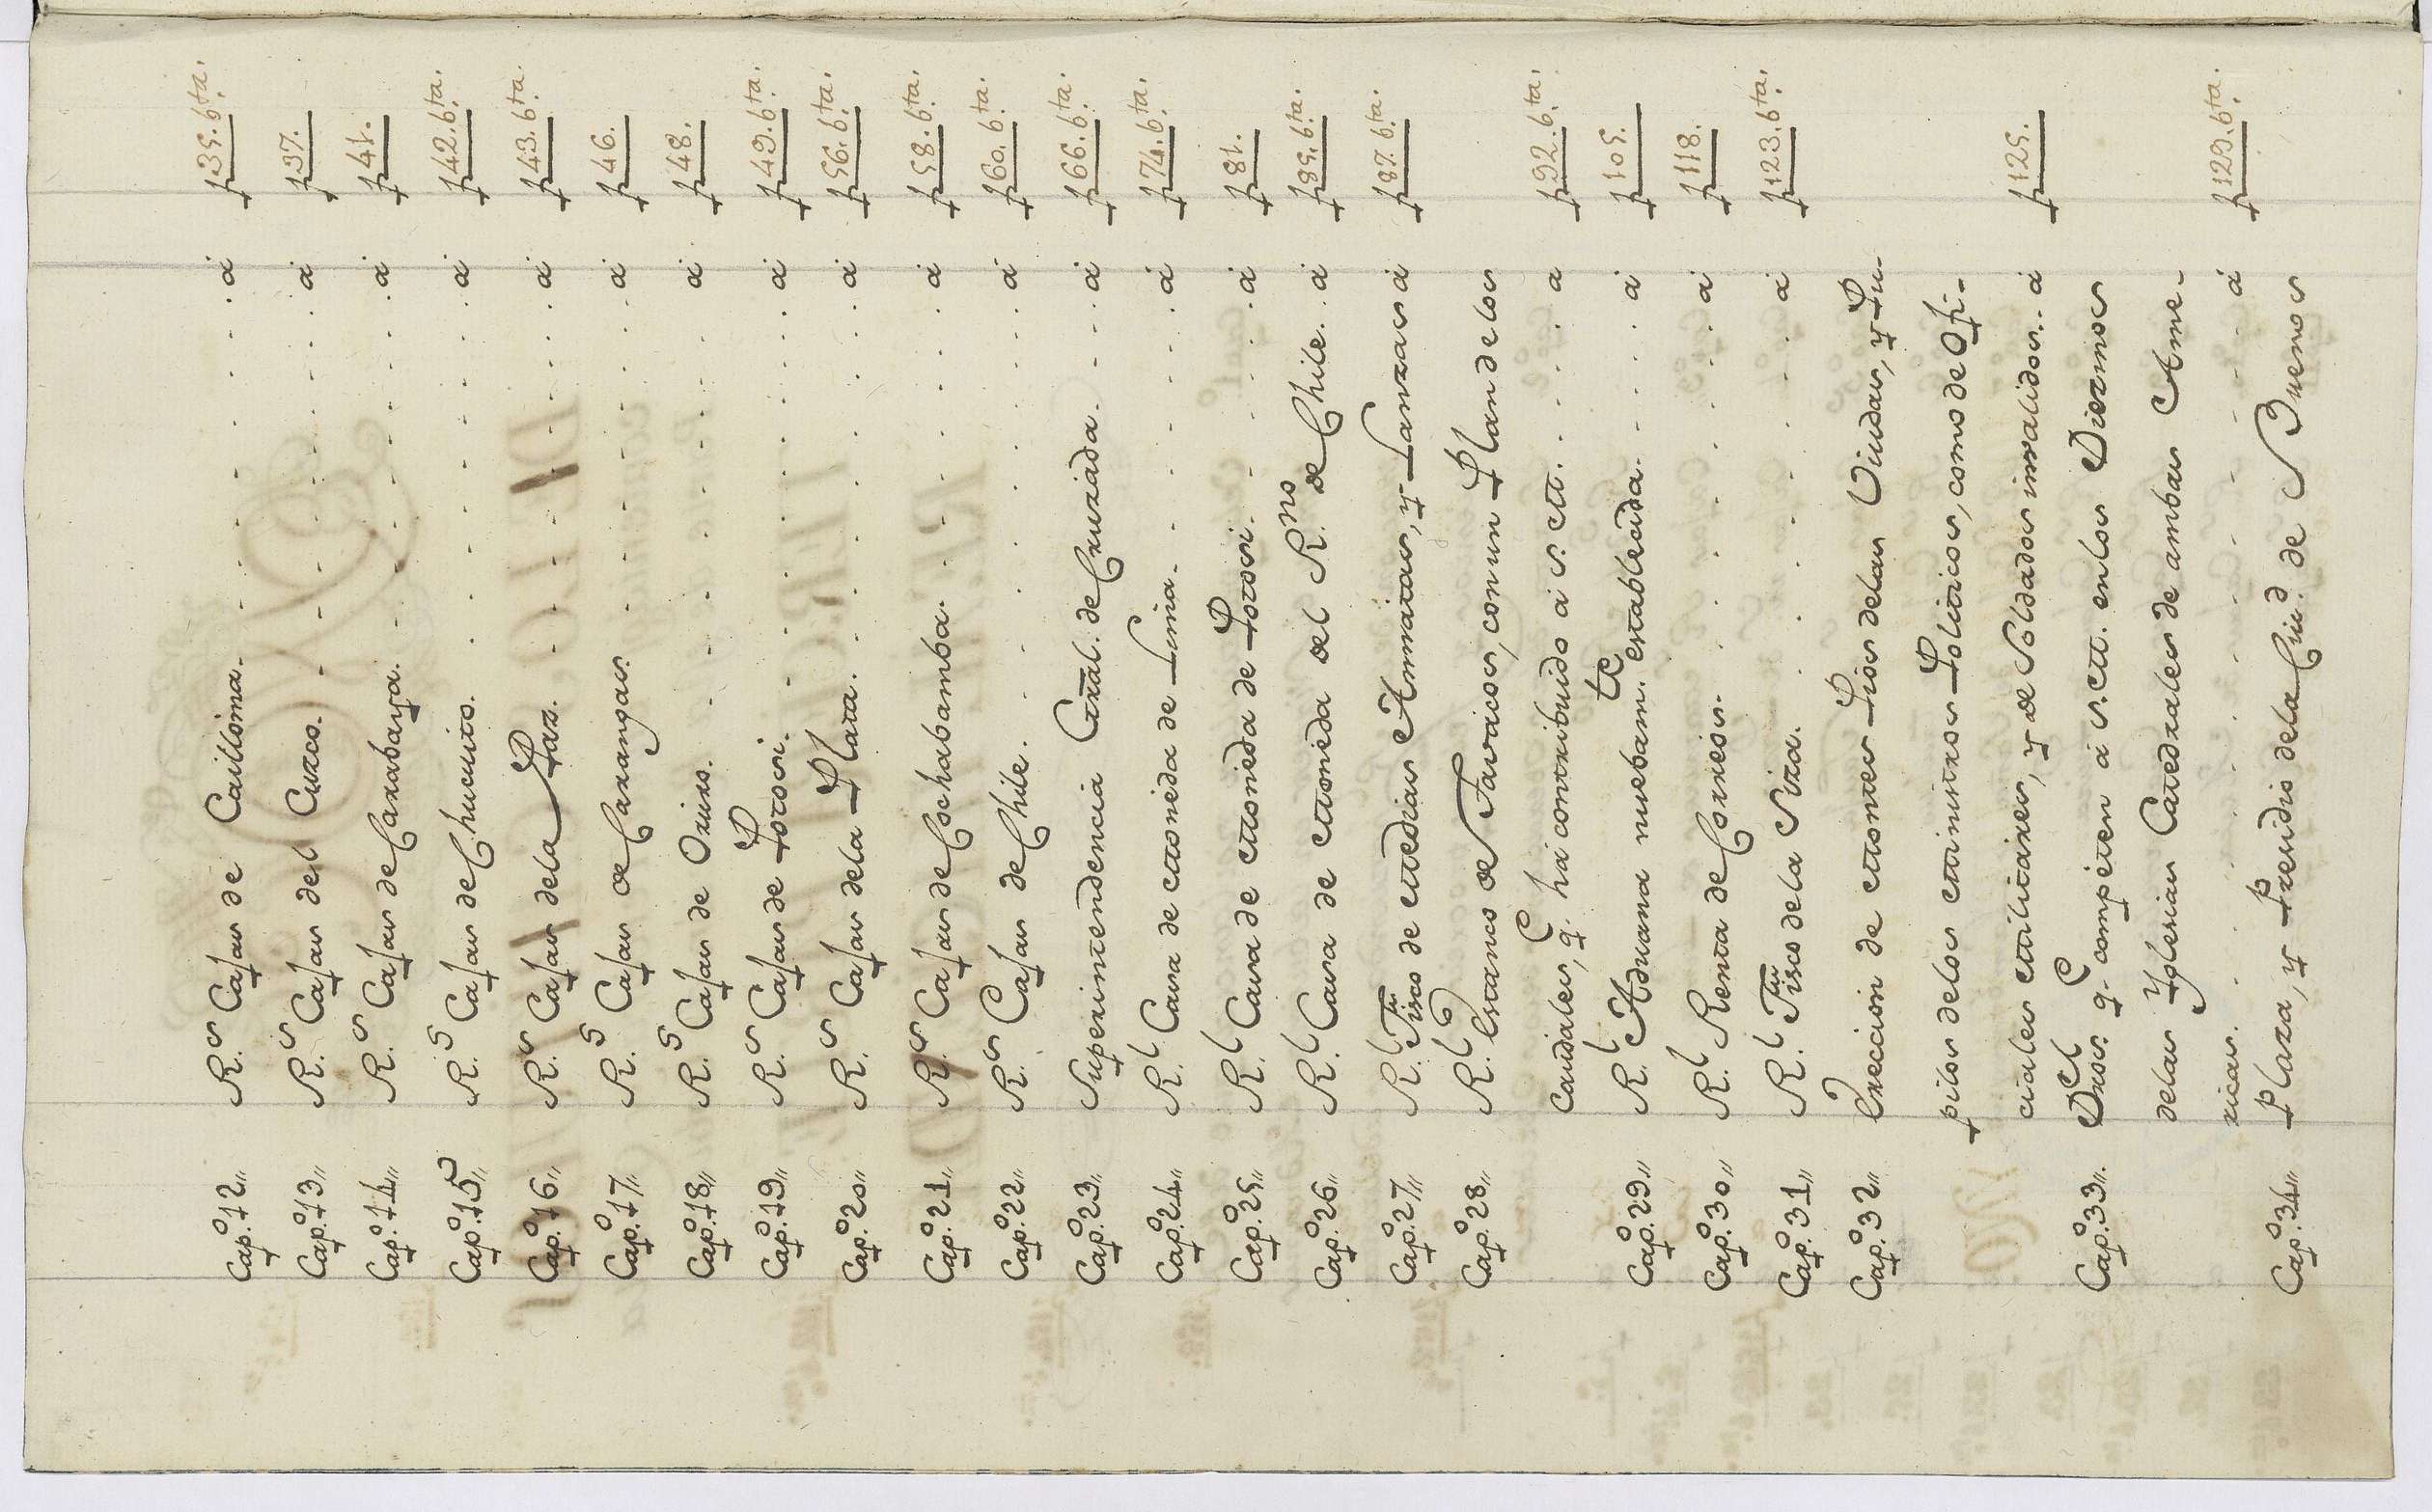 Cap.º 12,, R.s Cajas de Cailloma. . . . . . . . á f 35. bta.
Cap.º 13,, R.s Cajas del Cuzco. . . . . . . . á f 37.
Cap.º 14,, R.s Cajas de Carabaya. . . . . . . á f 41.
Cap.º 15,, R.s Cajas de Chucuito. . . . . . . . á f 42. bta.
Cap.º 16,, R.s Cajas dela Paz. . . . . . . . á f 43. bta.
Cap.º 17,, R.s Cajas de Carangas . . . . . . . á f 46.
Cap.º 18,, R.s Cajas de Oruro. . . . . . . . á f 48.
Cap.º 19,, R.s Cajas de Potosi. . . . . . . . á f 49. bta.
Cap.º 20,, R.s Cajas dela Plata. . . . . . . . á f 56. bta.
Cap.º 21,, R.s Cajas de Cochabamba. . . . . . . á f 58. bta.
Cap.º 22,, R.s Cajas de Chile. . . . . . . . á f 60. bta.
Cap.º 23,, Superintendencia Gral. de Cruzada. . . . á f 66. bta.
Cap.º 24,, R.l Casa de Moneda de Lima. . . . . . á f 74. bta.
Cap.º 25,, R.l Casa de Moneda de Potosi. . . . . . á f 81.
Cap.º 26,, R.l Casa de Moneda del R.no de Chile. . á f 85. bta.
Cap.º 27,, R.l Fisco de Medias Annatas, y Lanzas á f 87. bta.
Cap.º 28,, R.l Estanco de Tavacos, con un Plan de los
Caudales, q.e há contribuido á S. M. . . . . a f 92. bta.
Cap.º 29,, R.l Aduana nuebam.te establecida. . . . . á f 105.
Cap.º 30,, R.l Renta de Correos. . . . . . . á f 118.
Cap.º 31,, R.l Fisco de la Siza. . . . . . . á f 123. bta.
Cap.º 32,, Ereccion de Montes Pios delas Viudas, y Pu-
pilos delos Ministros Politicos, como de Ofi-
ciales Militares, y de Soldados invalidos. . á f 125.
Cap.º 33,, Dros. q.e compéten á S. M. enlos Diezmos
delas Yglesias Catedrales de ambas Ame-
ricas. . . . . . . . . á f 129. bta.
Cap.º 34,, Plaza, y Presidio dela Ciu.d de Buenos